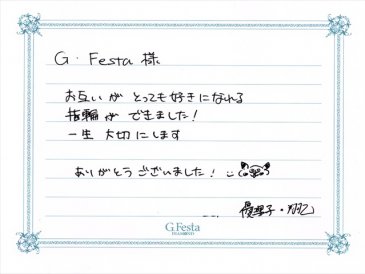 G.Festa 様
お互いが とっても好きになれる
指輪が できました!
一生 大切にします
ありがとうございました!
G.Festa